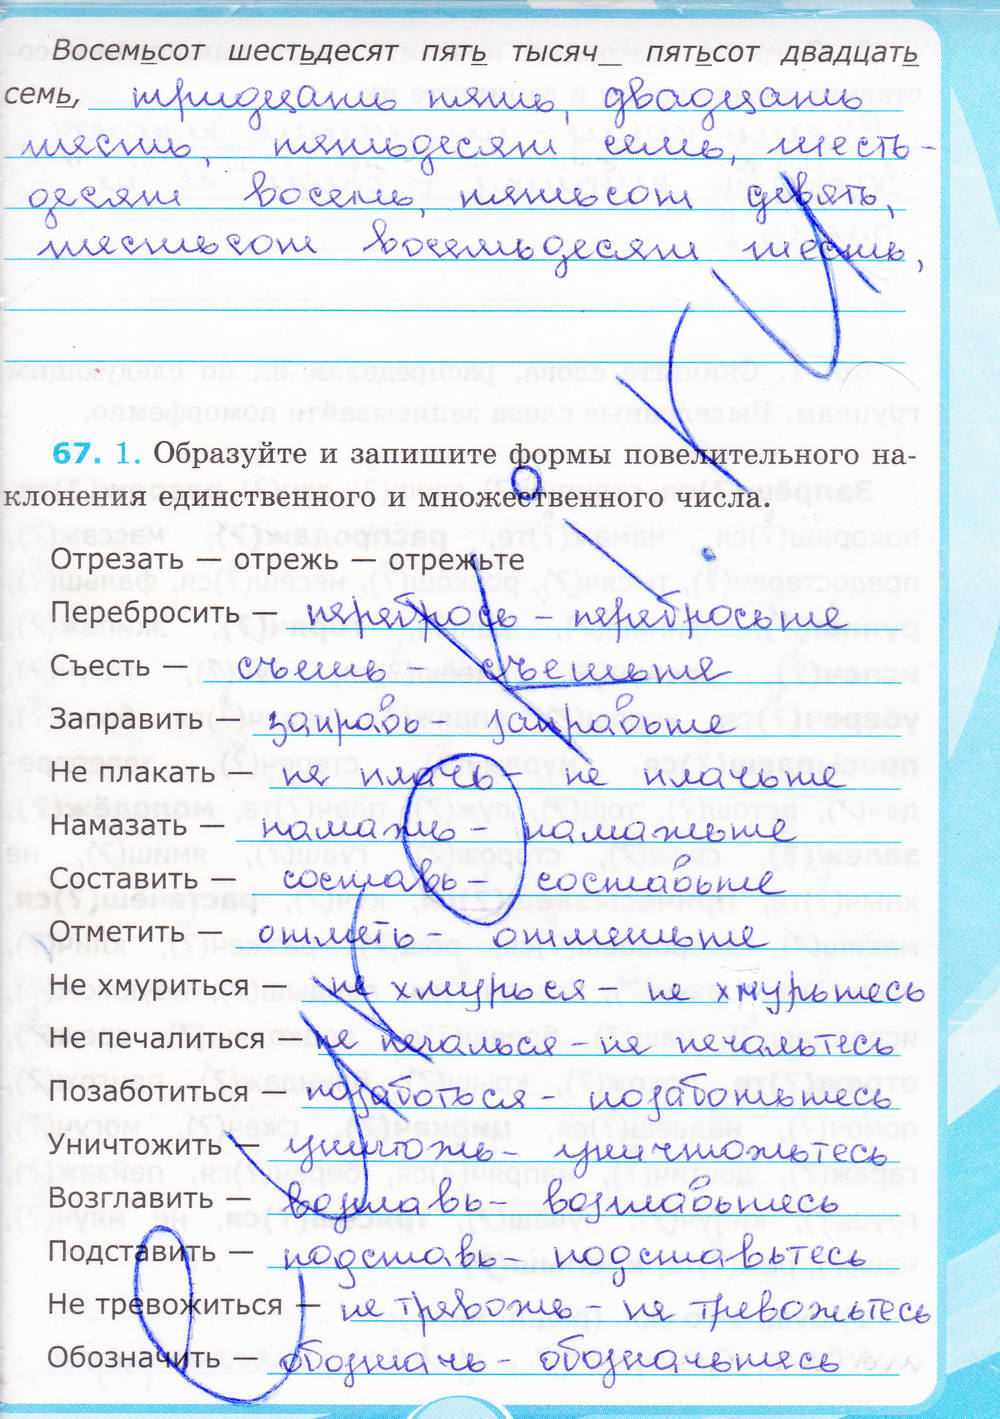 Восемьсот шестьдесят пять тысяч_ пятьсот двадцать
семь, тридцать пять, двадцать
шесть, пятьдесят семь, шесть-
десят восемь, пятьсот девять,
шестьсот восемьдесят шесть,
67. 1. Образуйте и запишите формы повелительного на-
клонения единственного и множественного числа.
Отрезать — отрежь — отрежьте
Перебросить — перебрось – перебросьте
Съесть — съешь – съешьте
Заправить — заправь – заправьте
Не плакать — не плачь – не плачьте
Намазать — намажь – намажьте
Составить — составь – составьте
Отметить — отметь – отметьте
Не хмуриться — не хмурься – не хмурьтесь
Не печалиться — не печалься – не печальтесь
Позаботиться — позаботься – позаботьтесь
Уничтожить — уничтожь – уничтожьтесь
Возглавить — возглавь – возглавьтесь
Подставить — подставь – подставьтесь
Не тревожиться — не тревожь – не тревожьтесь
Обозначить — обозначь – обозначьтесь